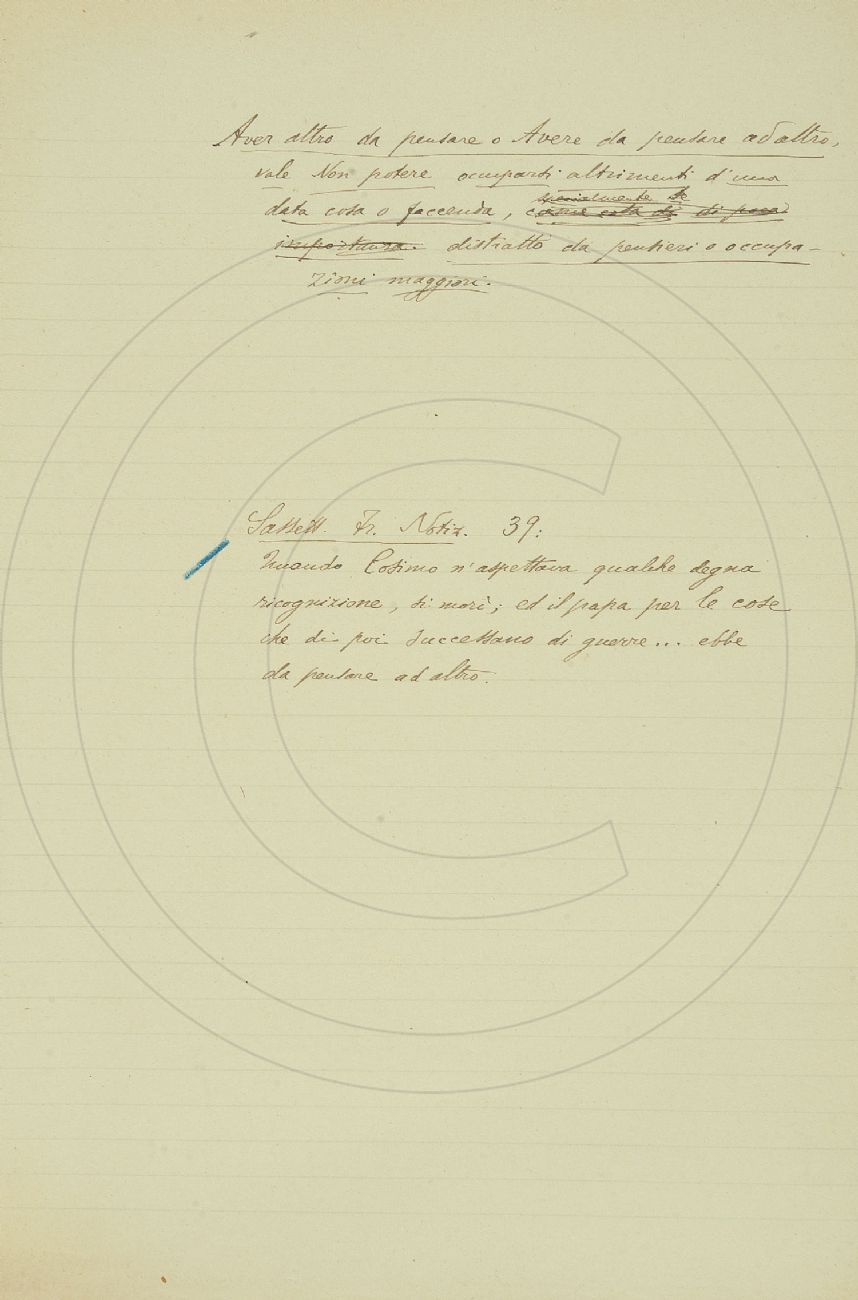 Aver altro da pensare o Avere da pensare ad altro,
vale Non potere occuparsi altrimenti d'una
specialmente se
data cosa o faccenda, come cosa di di poca
importanza. distratto da pensieri o occupa-
zioni maggiori.
Sassett. Fr. Notiz. 39:
Quando Cosimo n'aspettava qualche degna
ricognizione, si morì; ed il papa per le cose
che di poi successano di guerre... ebbe
da pensare ad altro.